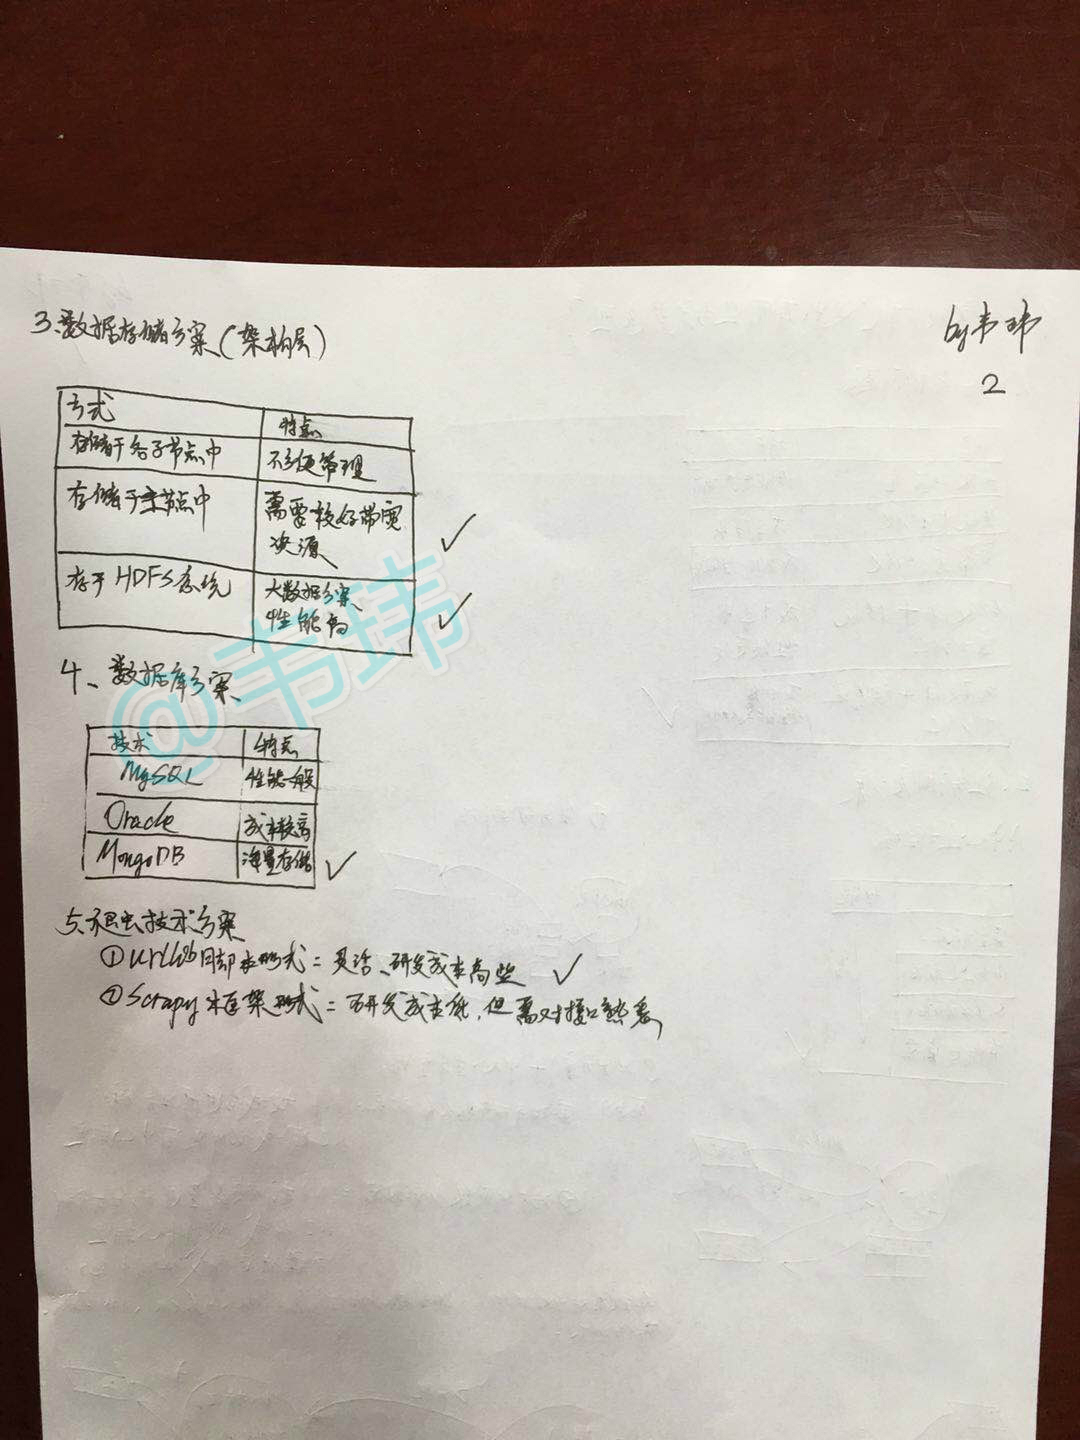 by韦玮
2
3、数据存储方案(架构层)
方式 特点
存储于各子节点中 不方便管理
存储于主节点中 需要较好带宽
资源 ✓
存于HDFS系统 大数据方案、
性能高 ✓
@韦玮
4、数据库方案、
技术 特点
MySQL 性能一般
Oracle 成本较高
MongoDB 海量存储 ✓
5、爬虫技术方案
①urllib 形式:灵活、研发成本高些 ✓
②Scrapy框架形式:研发成本低,但需对接口熟悉